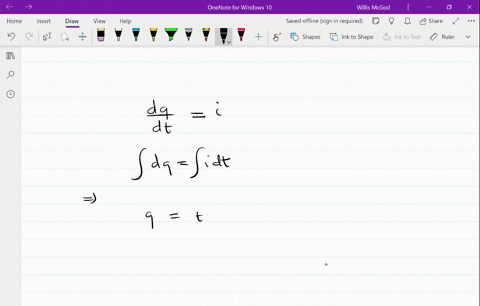 OneNote for Windows 10
Willis McGod
Home Insert Draw View Help
Saved offline (sign in required)
Share
Shapes
Ink to Shape
Ink to Text
Ruler
dq/dt = i
∫dq = ∫idt
⇒
q = t